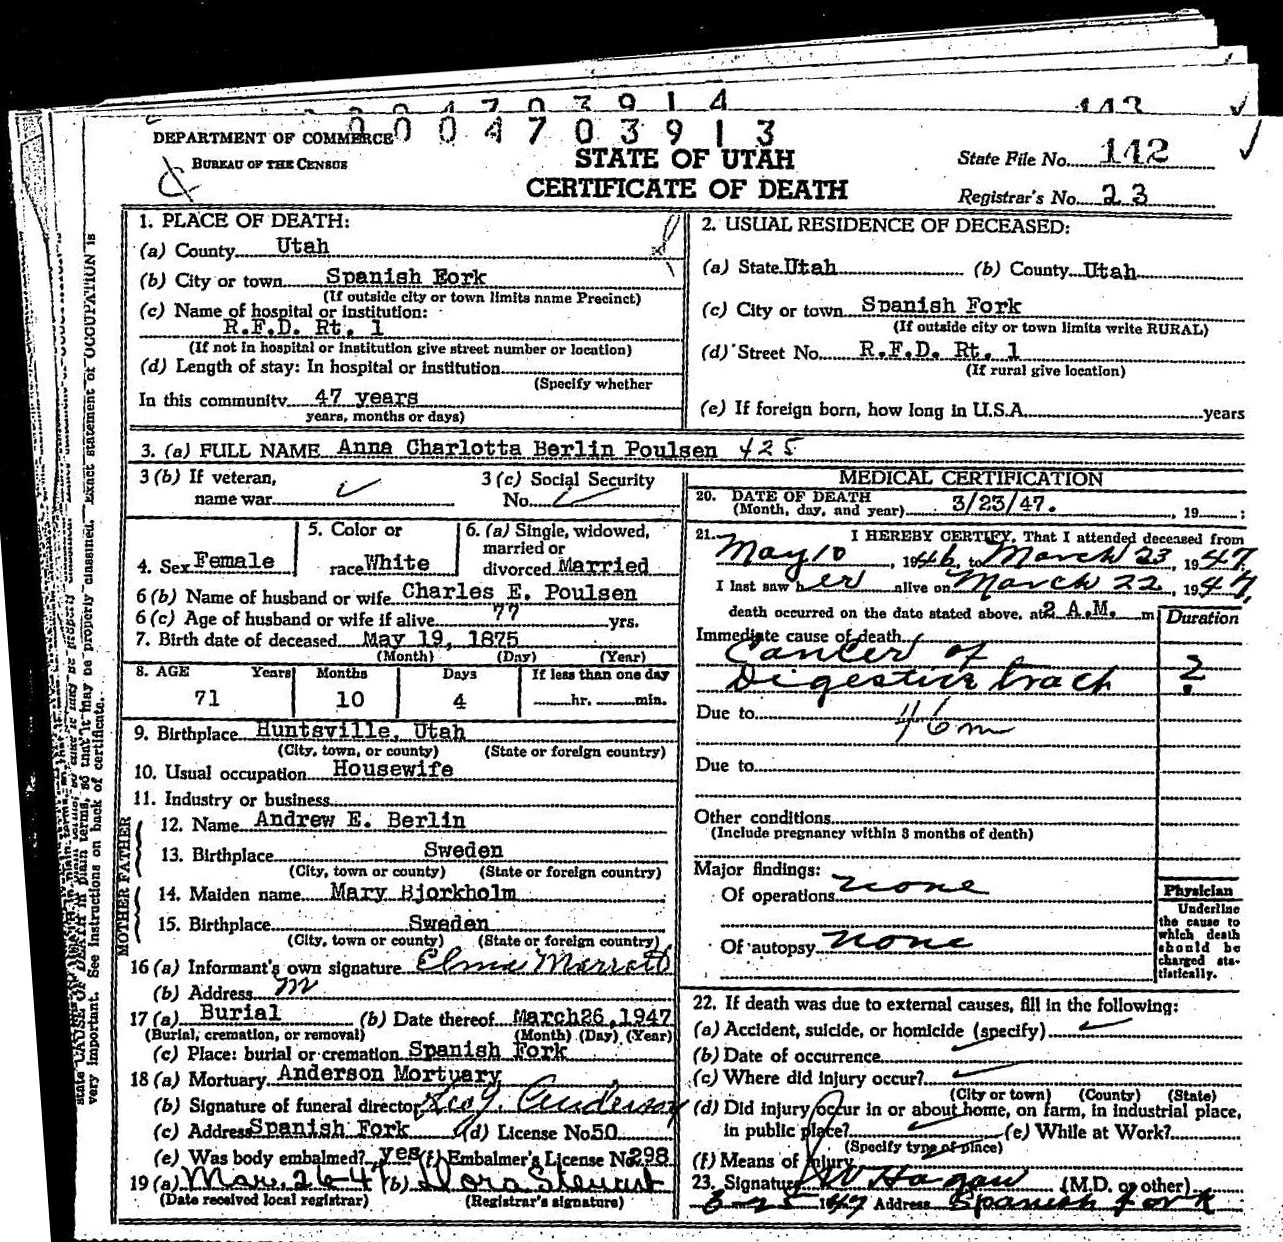 004703914
143
004703913
DEPARTMENT OF COMMERCE
BUREAU OF THE CENSUS
STATE OF UTAH
CERTIFICATE OF DEATH
State File No. 142
Registrar's No. 23
1. PLACE OF DEATH:
(a) County Utah
(b) City or town Spanish Fork
(If outside city or town limits name Precinct)
(c) Name of hospital or institution:
R.F.D. Rt. 1
(If not in hospital or institution give street number or location)
(d) Length of stay: In hospital or institution
(Specify whether
In this community 47 years
years, months or days)
2. USUAL RESIDENCE OF DECEASED:
(a) State Utah (b) County Utah
(c) City or town Spanish Fork
(If outside city or town limits write RURAL)
(d) Street No. R.F.D. Rt. 1
(If rural give location)
(e) If foreign born, how long in U.S.A. years
3. (a) FULL NAME Anna Charlotta Berlin Poulsen 425
3 (b) If veteran,
name war
3 (c) Social Security
No.
4. Sex Female
5. Color or
race White
6. (a) Single, widowed,
married or
divorced Married
6 (b) Name of husband or wife Charles E. Poulsen
6 (c) Age of husband or wife if alive 77 yrs.
7. Birth date of deceased May 19, 1875
(Month) (Day) (Year)
8. AGE Years Months Days If less than one day
71 10 4 hr. min.
9. Birthplace Huntsville, Utah
(City, town, or county) (State or foreign country)
10. Usual occupation Housewife
11. Industry or business
FATHER
12. Name Andrew E. Berlin
13. Birthplace Sweden
(City, town or county) (State or foreign country)
MOTHER
14. Maiden name Mary Bjorkholm
15. Birthplace Sweden
(City, town or county) (State or foreign country)
16 (a) Informant's own signature
(b) Address
17 (a) Burial (b) Date thereof March 26, 1947
(Burial, cremation, or removal) (Month) (Day) (Year)
(c) Place: burial or cremation Spanish Fork
18 (a) Mortuary Anderson Mortuary
(b) Signature of funeral director Geo J. Anderson
(c) Address Spanish Fork (d) License No 50
(e) Was body embalmed? yes (f) Embalmer's License No 298
19 (a) Mar. 26-47 (b) Flora Stewart
(Date received local registrar) (Registrar's signature)
MEDICAL CERTIFICATION
20. DATE OF DEATH
(Month, day, and year) 3/23/47. , 19 ;
21. I HEREBY CERTIFY, That I attended deceased from
May 10, 1946, to March 23, 1947,
I last saw her alive on March 22, 1947,
death occurred on the date stated above, at 2 A.M. m
Duration
Immediate cause of death
Cancer of
Digestive tract ?
Due to 46m
Due to
Other conditions
(Include pregnancy within 3 months of death)
Major findings:
Of operations none
Of autopsy none
Physician
Underline
the cause to
which death
should be
charged sta-
tistically.
22. If death was due to external causes, fill in the following:
(a) Accident, suicide, or homicide (specify)
(b) Date of occurrence
(c) Where did injury occur?
(City or town) (County) (State)
(d) Did injury occur in or about home, on farm, in industrial place,
in public place? (e) While at Work?
(Specify type of place)
(f) Means of Injury
23. Signature Hagan (M.D. or other)
3-25 1947 Address Spanish Fork
state CAUSE OF DEATH in plain terms, so that it may be properly classified. Exact statement of OCCUPATION is
very important. See instructions on back of certificate.